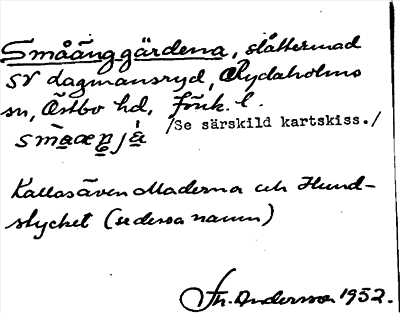 Småänggärdena, slåttermad
SV dagmansryd, Rydaholms
sn, Östbo hd, Jönk. l.
/Se särskild kartskiss./
Kallas även Maderna och Hund-
stycket (se dessa namn)
Th. Andersson 1932.